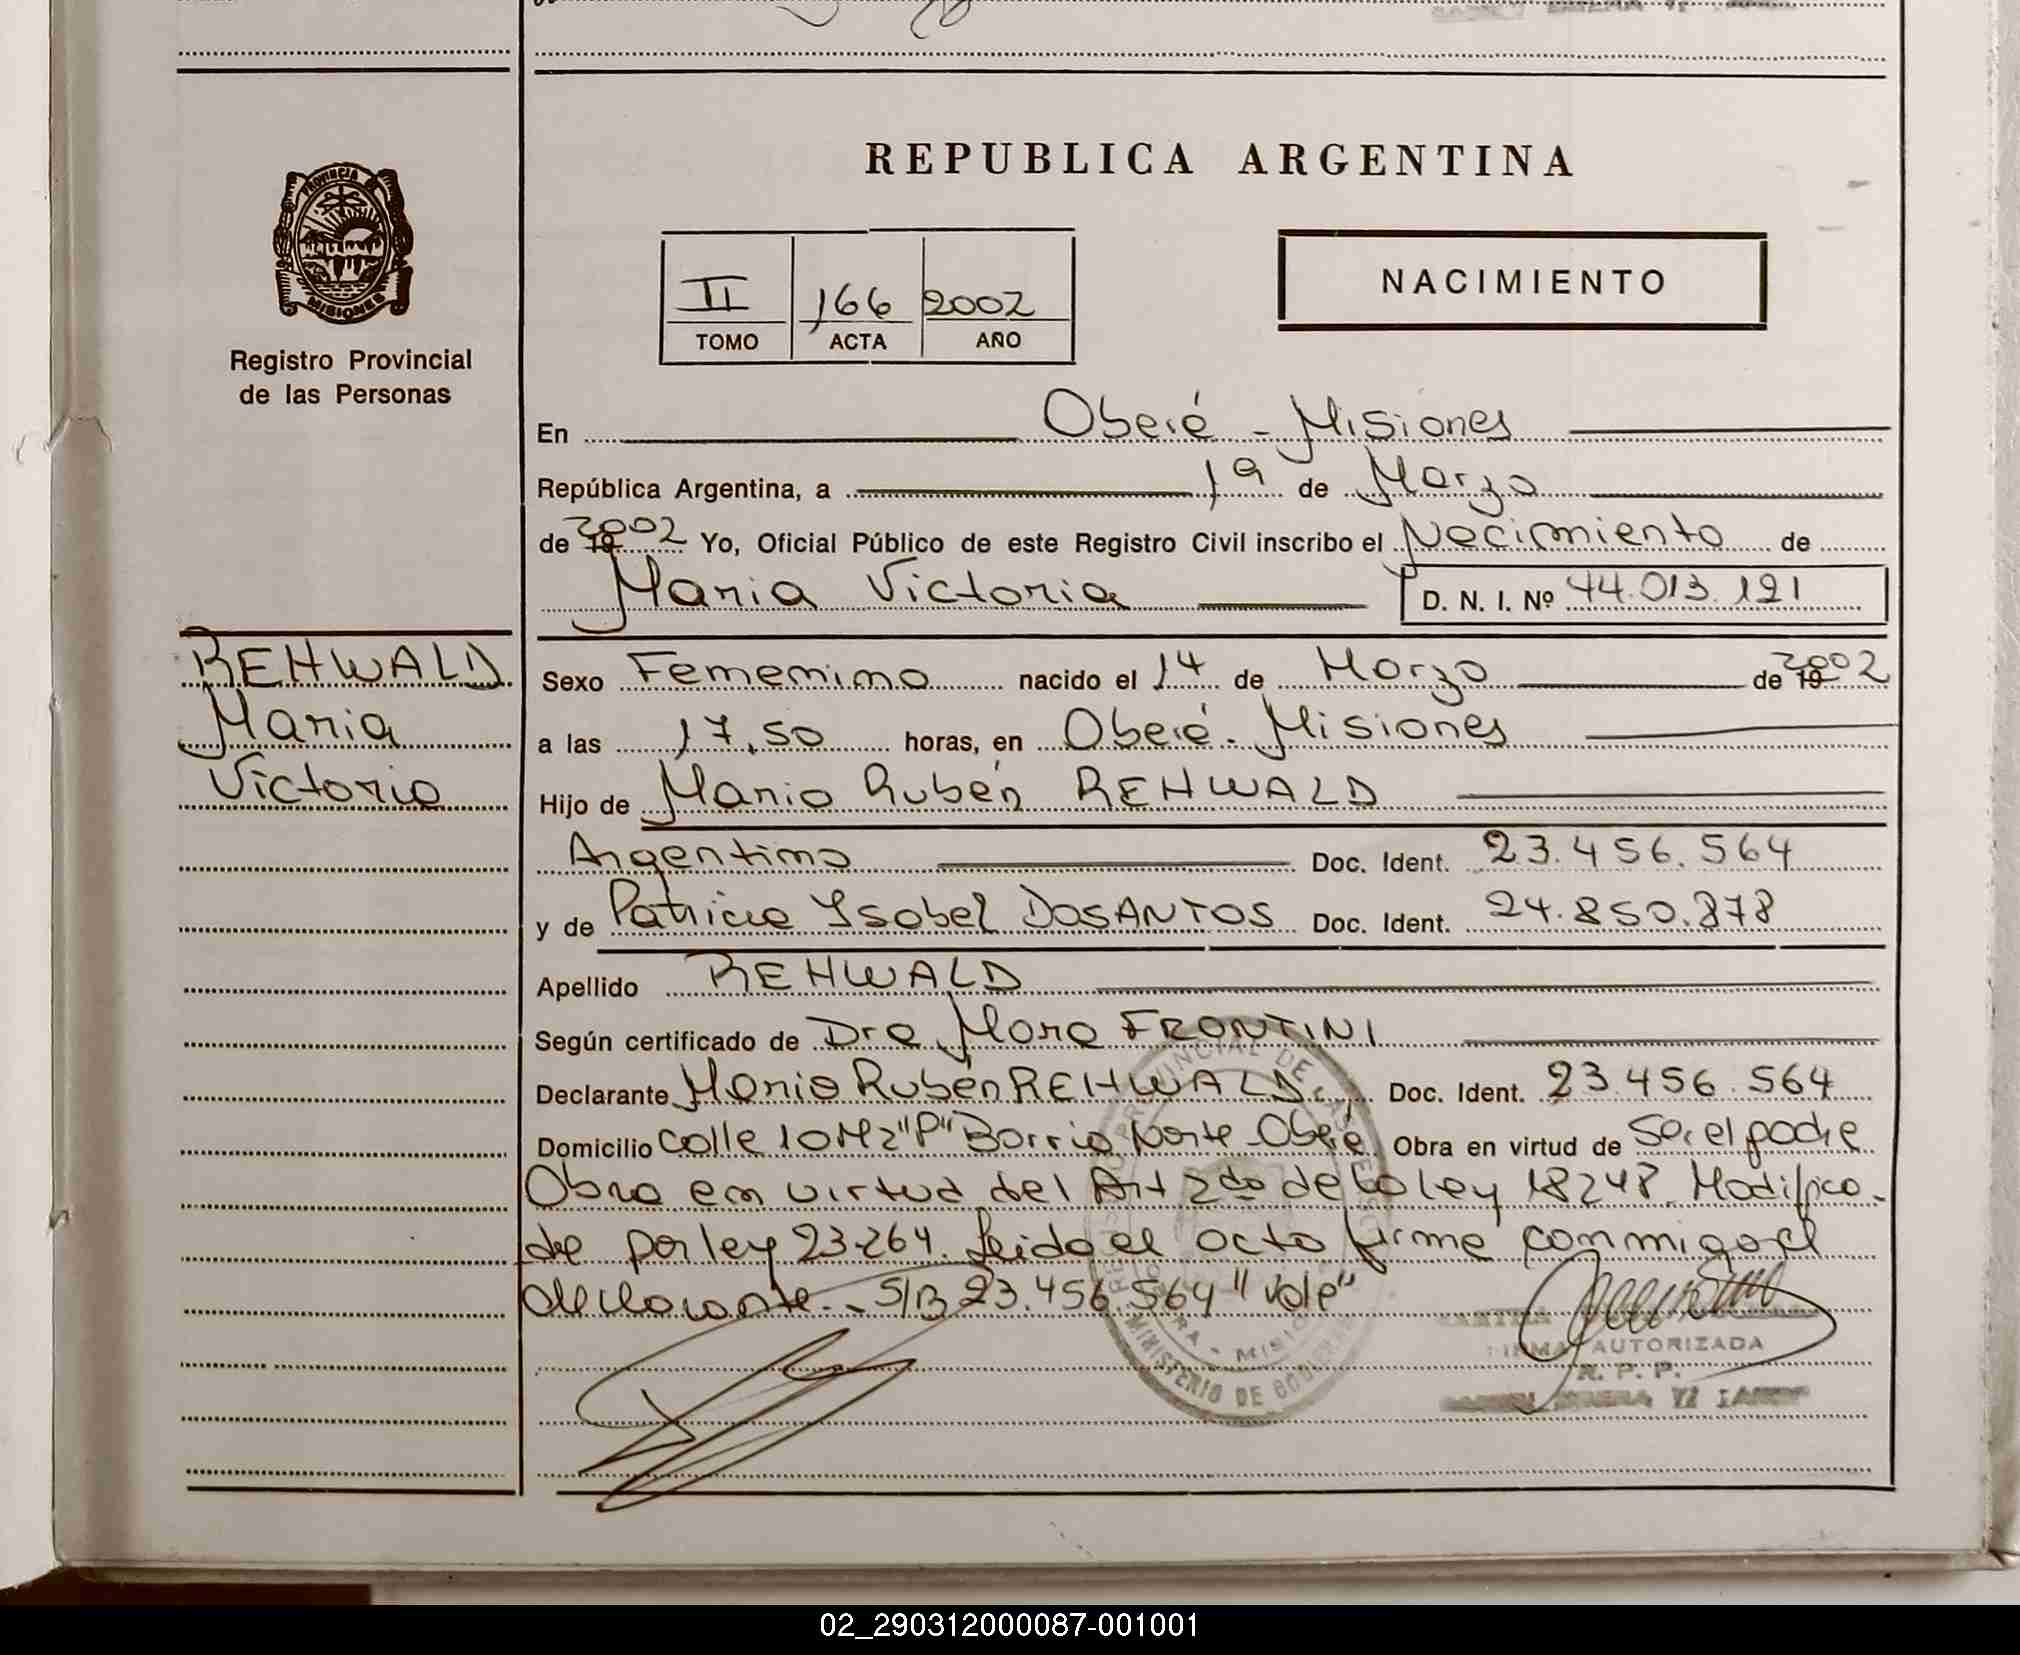 PROVINCIA DE
MISIONES
Registro Provincial
de las Personas
REPUBLICA ARGENTINA
II 166 2002
TOMO ACTA AÑO
NACIMIENTO
En Oberá - Misiones
República Argentina, a 19 de Marzo
de 2002 Yo, Oficial Público de este Registro Civil inscribo el Nacimiento de
Maria Victoria D. N. I. Nº 44.013.121
REHWALD
Maria
Victoria
Sexo Femenino nacido el 14 de Marzo de 2002
a las 17,50 horas, en Oberá - Misiones
Hijo de Mario Rubén REHWALD
Argentino Doc. Ident. 23.456.564
y de Patricia Isabel DOSANTOS Doc. Ident. 24.850.878
Apellido REHWALD
Según certificado de Dra Mara FRONTINI
Declarante Mario Rubén REHWALD Doc. Ident. 23.456.564
Domicilio Calle 10 Mz "P" Barrio Norte - Oberá Obra en virtud de Ser el padre
Obra en virtud del Art 2do de la ley 18248. Modifica-
da por ley 23.264. Leida el acta firma conmigo el
declarante. - S/B 23.456.564 "Vale"
MINISTERIO DE GOBIERNO
FIRMA AUTORIZADA
R. P. P.
02_290312000087-001001